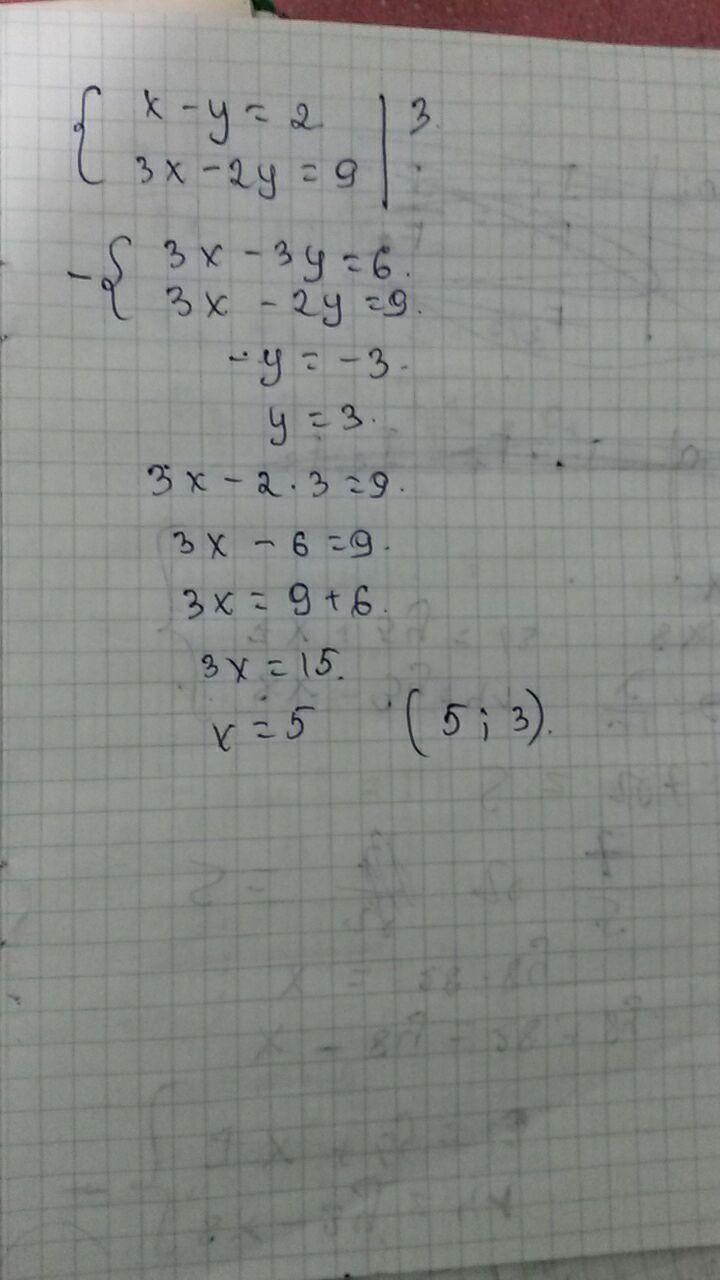 { x - y = 2 | 3.
3x - 2y = 9 | .
- { 3x - 3y = 6.
3x - 2y = 9.
-y = -3.
y = 3.
3x - 2 · 3 = 9.
3x - 6 = 9.
3x = 9 + 6.
3x = 15.
x = 5 (5; 3).